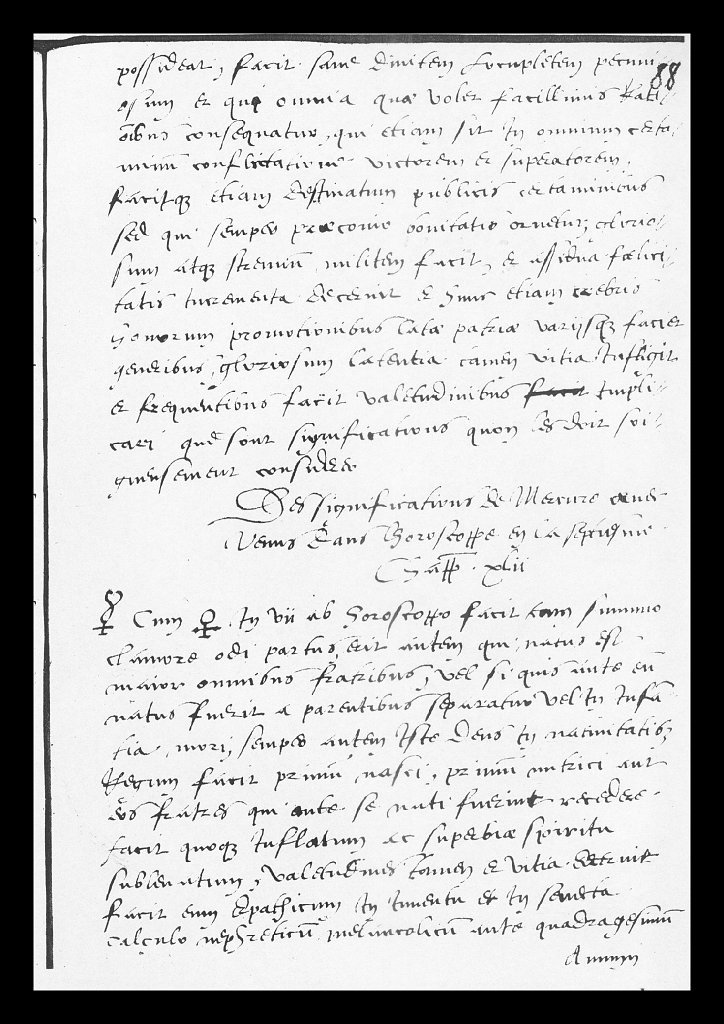 possideat, facit sane divitem locupletem pecuni-
88
osum et qui omnia quæ volet facillimis rati-
onibus consequatur, qui etiam sit in omnium certa-
minum conflictatione victorem et superatorem.
facitqz etiam destinatum publicis certaminibus
sed qui semper præconio bonitatis ornetur, glorio-
sum atqz strenuū militem facit, et assidua fœlici-
tatis incrementa decernit et hunc etiam crebris
honorum promotionibus latæ patriæ variisqz faciet
generibus gloriosum latentia tamen vitia infligit
et frequentibus facit valetudinibus impli-
cari que sont significations quon les doit soi-
gneusement considerer
Des significations de Mercure avec
Venus dans Horoscoppe en la septiesme
Chapp. xlii
☿ Cum ♀ . in vii ab horoscoppo facit cum summo
clamore edi partus, erit autem qui natus est
maior omnibus fratribus, vel si quis ante eū
natus fuerit a parentibus separatur vel in infā-
tia mori, semper autem iste Deus in nativitatibz
Regum facit primū nasci, primū nutrici aut
eos fratres qui ante se nati fuerint recedere
facit quoqz inflatum ac superbiæ spiritu
sublevatum, valetudines tamen et vitia decernit
facit eum epathicum in iuventa et in senecta
calculo nephreticū melancolicū ante quadragesimū
Annum